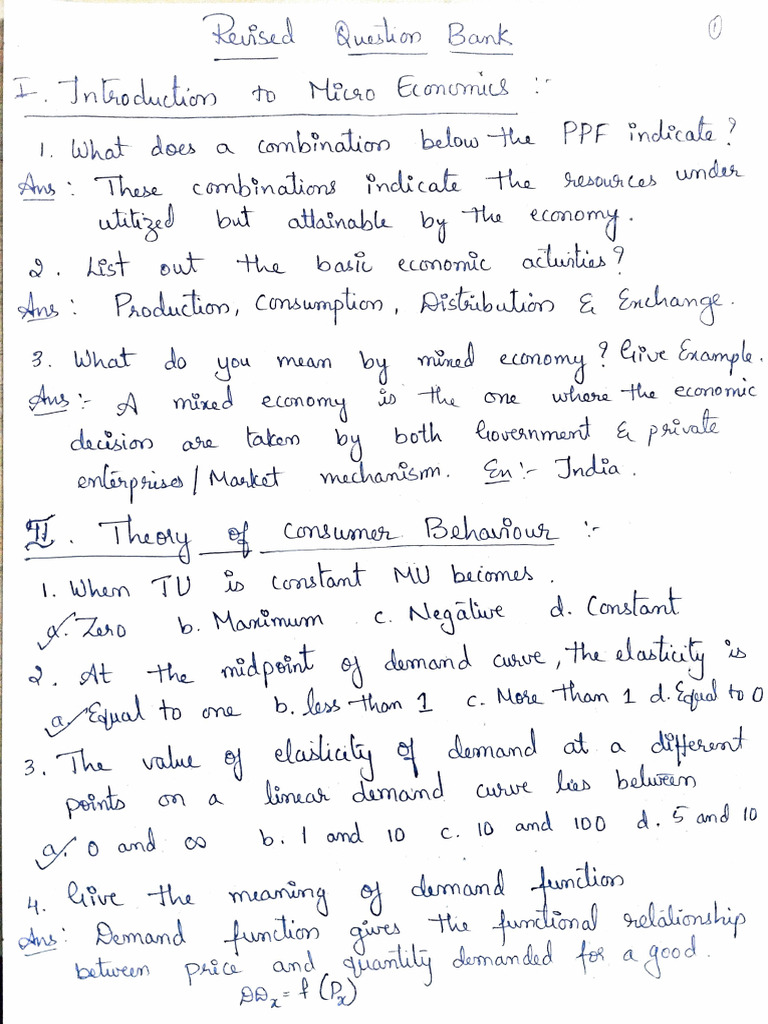 Revised Question Bank
1
I. Introduction to Micro Economics :-
1. What does a combination below the PPF indicate?
Ans : These combinations indicate the resources under
utitized but attainable by the economy.
2. List out the basic economic activities?
Ans : Production, Consumption, Distribution & Exchange.
3. What do you mean by mixed economy? Give Example.
Ans :- A mixed economy is the one where the economic
decision are taken by both Government & private
enterprises/Market mechanism. Ex :- India.
II. Theory of Consumer Behaviour :-
1. When TU is constant MU becomes.
a. Zero b. Maximum c. Negative d. Constant
2. At the midpoint of demand curve, the elasticity is
a. Equal to one b. less than 1 c. More than 1 d. Equal to 0
3. The value of elasticity of demand at a different
points on a linear demand curve lies between
a. 0 and ∞ b. 1 and 10 c. 10 and 100 d. 5 and 10
4. Give the meaning of demand function
Ans: Demand function gives the functional relationship
between price and quantity demanded for a good.
DDₓ = f (Pₓ)